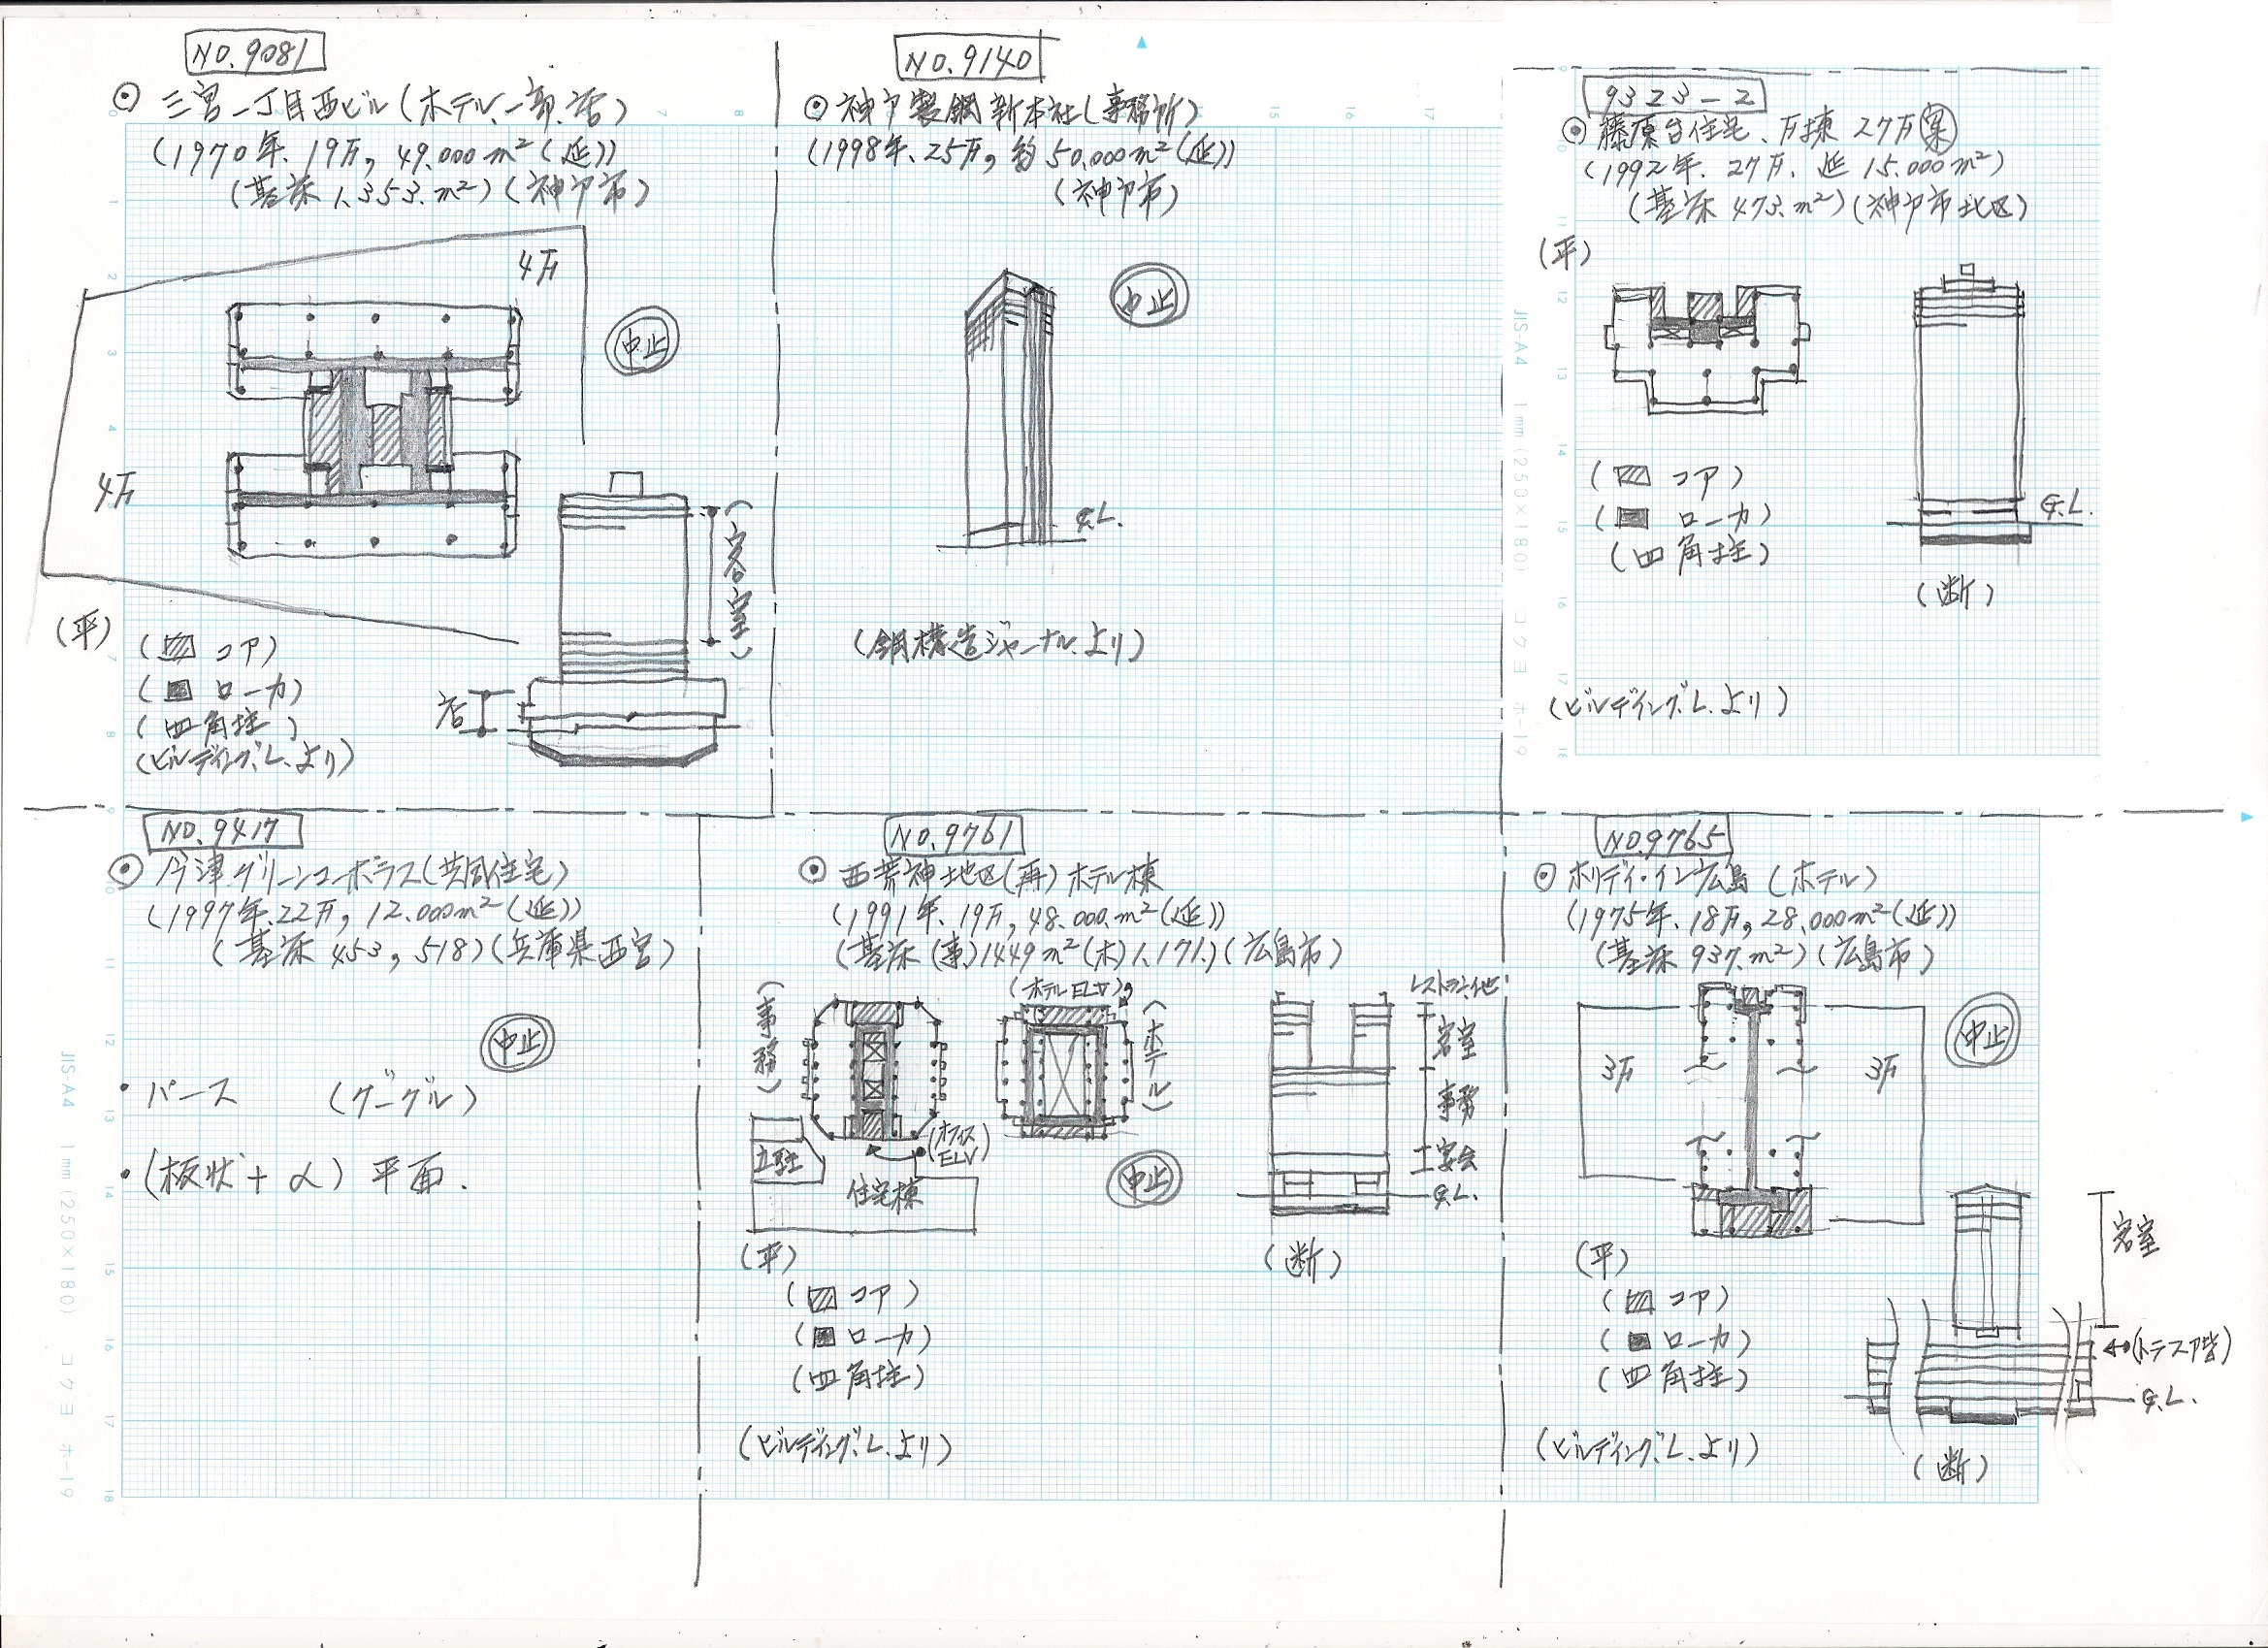 NO.9081
◉ 三宮一丁目西ビル(ホテル、一部.店)
(1970年、19F, 49.000m²(延))
(基準 1,353.m²)(神戸市)
4F
中止
4F
(客室)
店
(平)
(コア)
(ローカ)
(四角柱)
(ビルディング.L.より)
NO.9140
◉ 神戸製鋼新本社(事務所)
(1998年、25F, 約50.000m²(延))
(神戸市)
中止
G.L.
(鋼構造ジャーナルより)
9323-2
◉ 藤原台住宅、F棟 27F案
(1992年、27F、延 15.000m²)
(基準 473.m²)(神戸市北区)
(平)
(コア)
(ローカ)
(四角柱)
G.L.
(断)
(ビルディング.L.より)
NO.9417
◉ 今津グリーンコーポラス(共同住宅)
(1997年.22F, 12.000m²(延))
(基準 453, 518)(兵庫県西宮)
中止
・パース (グーグル)
・(板状+α) 平面.
NO.9761
◉ 西荒神地区(再)ホテル棟
(1991年、19F, 48.000.m²(延))
(基準(事)1449m²(ホ)1.171.)(広島市)
(事務)
(ホテルELV)
(ホテル)
(オフィスELV)
立駐
住宅棟
中止
レストラン、他
客室
事務
宴会
G.L.
(平)
(断)
(コア)
(ローカ)
(四角柱)
(ビルディング.L.より)
NO.9765
◉ ホリデイ・イン広島 (ホテル)
(1975年、18F, 28.000m²(延))
(基準 937.m²)(広島市)
3F
3F
中止
(平)
(コア)
(ローカ)
(四角柱)
客室
(トラス階)
G.L.
(断)
(ビルディング.L.より)
JIS-A4 1mm(250×180) コクヨ ホ-19
JIS-A4 1mm(250×180) コクヨ ホ-19